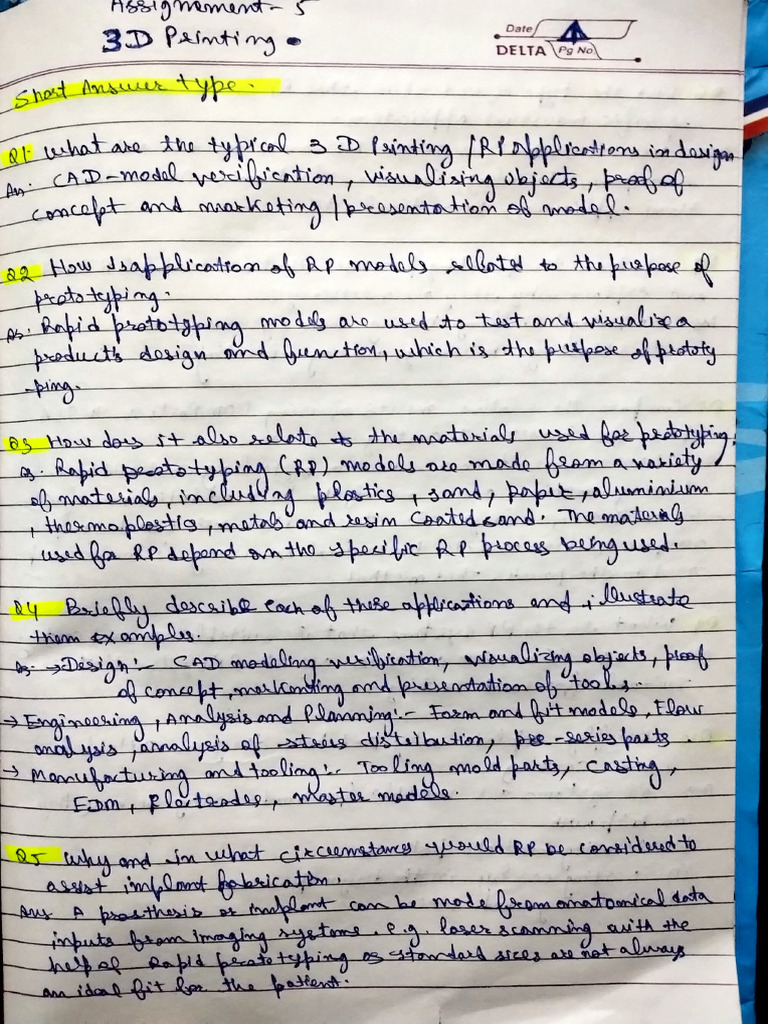 Assignement - 5
3D Printing.
Date
DELTA Pg No
Short Answer type.
Q1. What are the typical 3 D Printing /RP applications in design
Ans. CAD-model verification, visualising objects, proof of
concept and marketing/presentation of model.
Q2 How Is application of RP models related to the purpose of
prototyping.
As. Rapid prototyping models are used to test and visualize a
product's design and function, which is the purpose of prototy
-ping.
Q3 How does it also relate to the materials used for prototyping.
As. Rapid prototyping (RP) models are made from a variety
of materials, including plastics, sand, paper, aluminium
, thermoplastics, metals and resin coated sand. The materials
used for RP depend on the specific RP process being used.
Q4 Briefly describe each of these applications and illustrate
them examples.
As. → Design:- CAD modeling verification, visualizing objects, proof
of concept, markenting and presentation of tools.
→ Engineering, Analysis and Planning:- Form and fit models, Flow
analysis, analysis of stress distribution, pre-series parts.
→ Manufacturing and tooling:- Tooling mold parts, casting,
EDM, Electrodes, master models.
Q5 Why and in what circumstances would RP be considered to
assist implant fabrication.
Ans A prosthesis or implant can be made from anatomical data
inputs from imaging systems. e.g. laser scanning with the
help of Rapid prototyping as standard sizes are not always
an ideal fit for the patient.